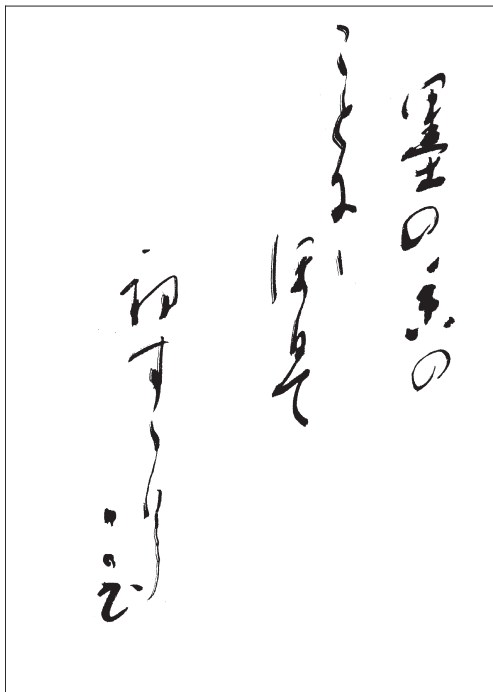 墨の香の
ことに
ほ日て
初すゝり